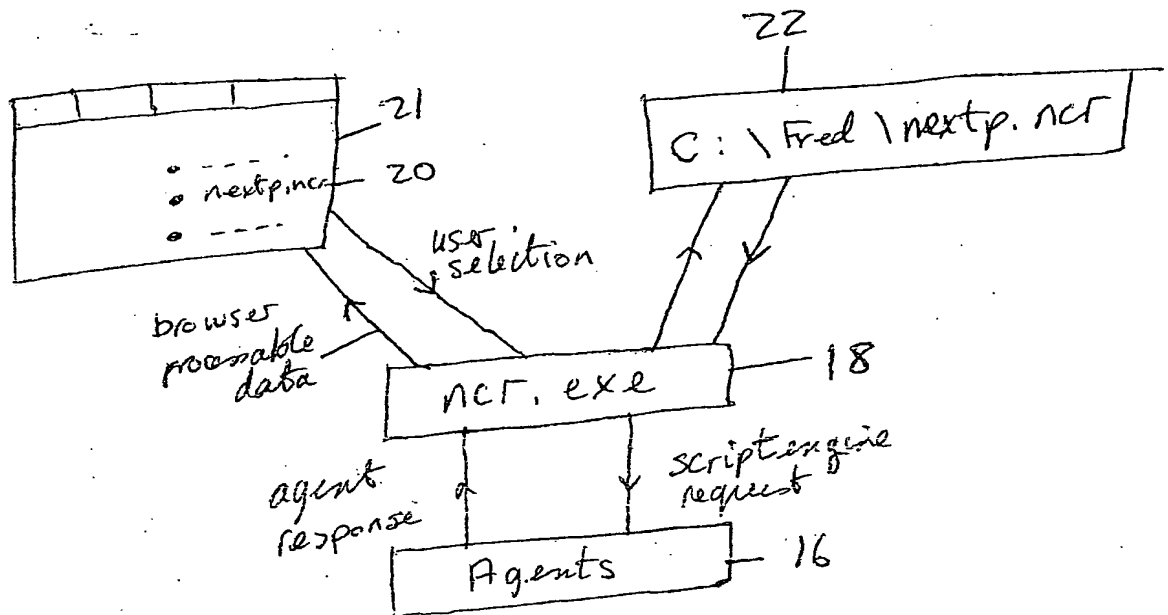 22
21
C:\Fred\nextp.ncr
nextp.ncr
20
user
selection
browser
processable
data
18
ncr.exe
agent
response
script engine
request
16
Agents